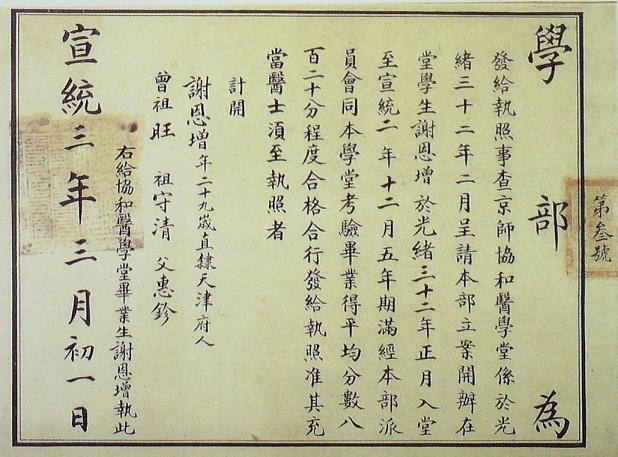 第叁號
學部為
發給執照事查京師協和醫學堂係於光
緒三十二年二月呈請本部立案開辦在
堂學生謝恩增於光緒三十二年正月入堂
至宣統二年十二月五年期滿經本部派
員會同本學堂考驗畢業得平均分數八
百二十分程度合格合行發給執照准其充
當醫士須至執照者
計開
謝恩增年二十九歲直隸天津府人
曾祖旺 祖守清 父惠鉁
右給協和醫學堂畢業生謝恩增執此
宣統三年三月初一日